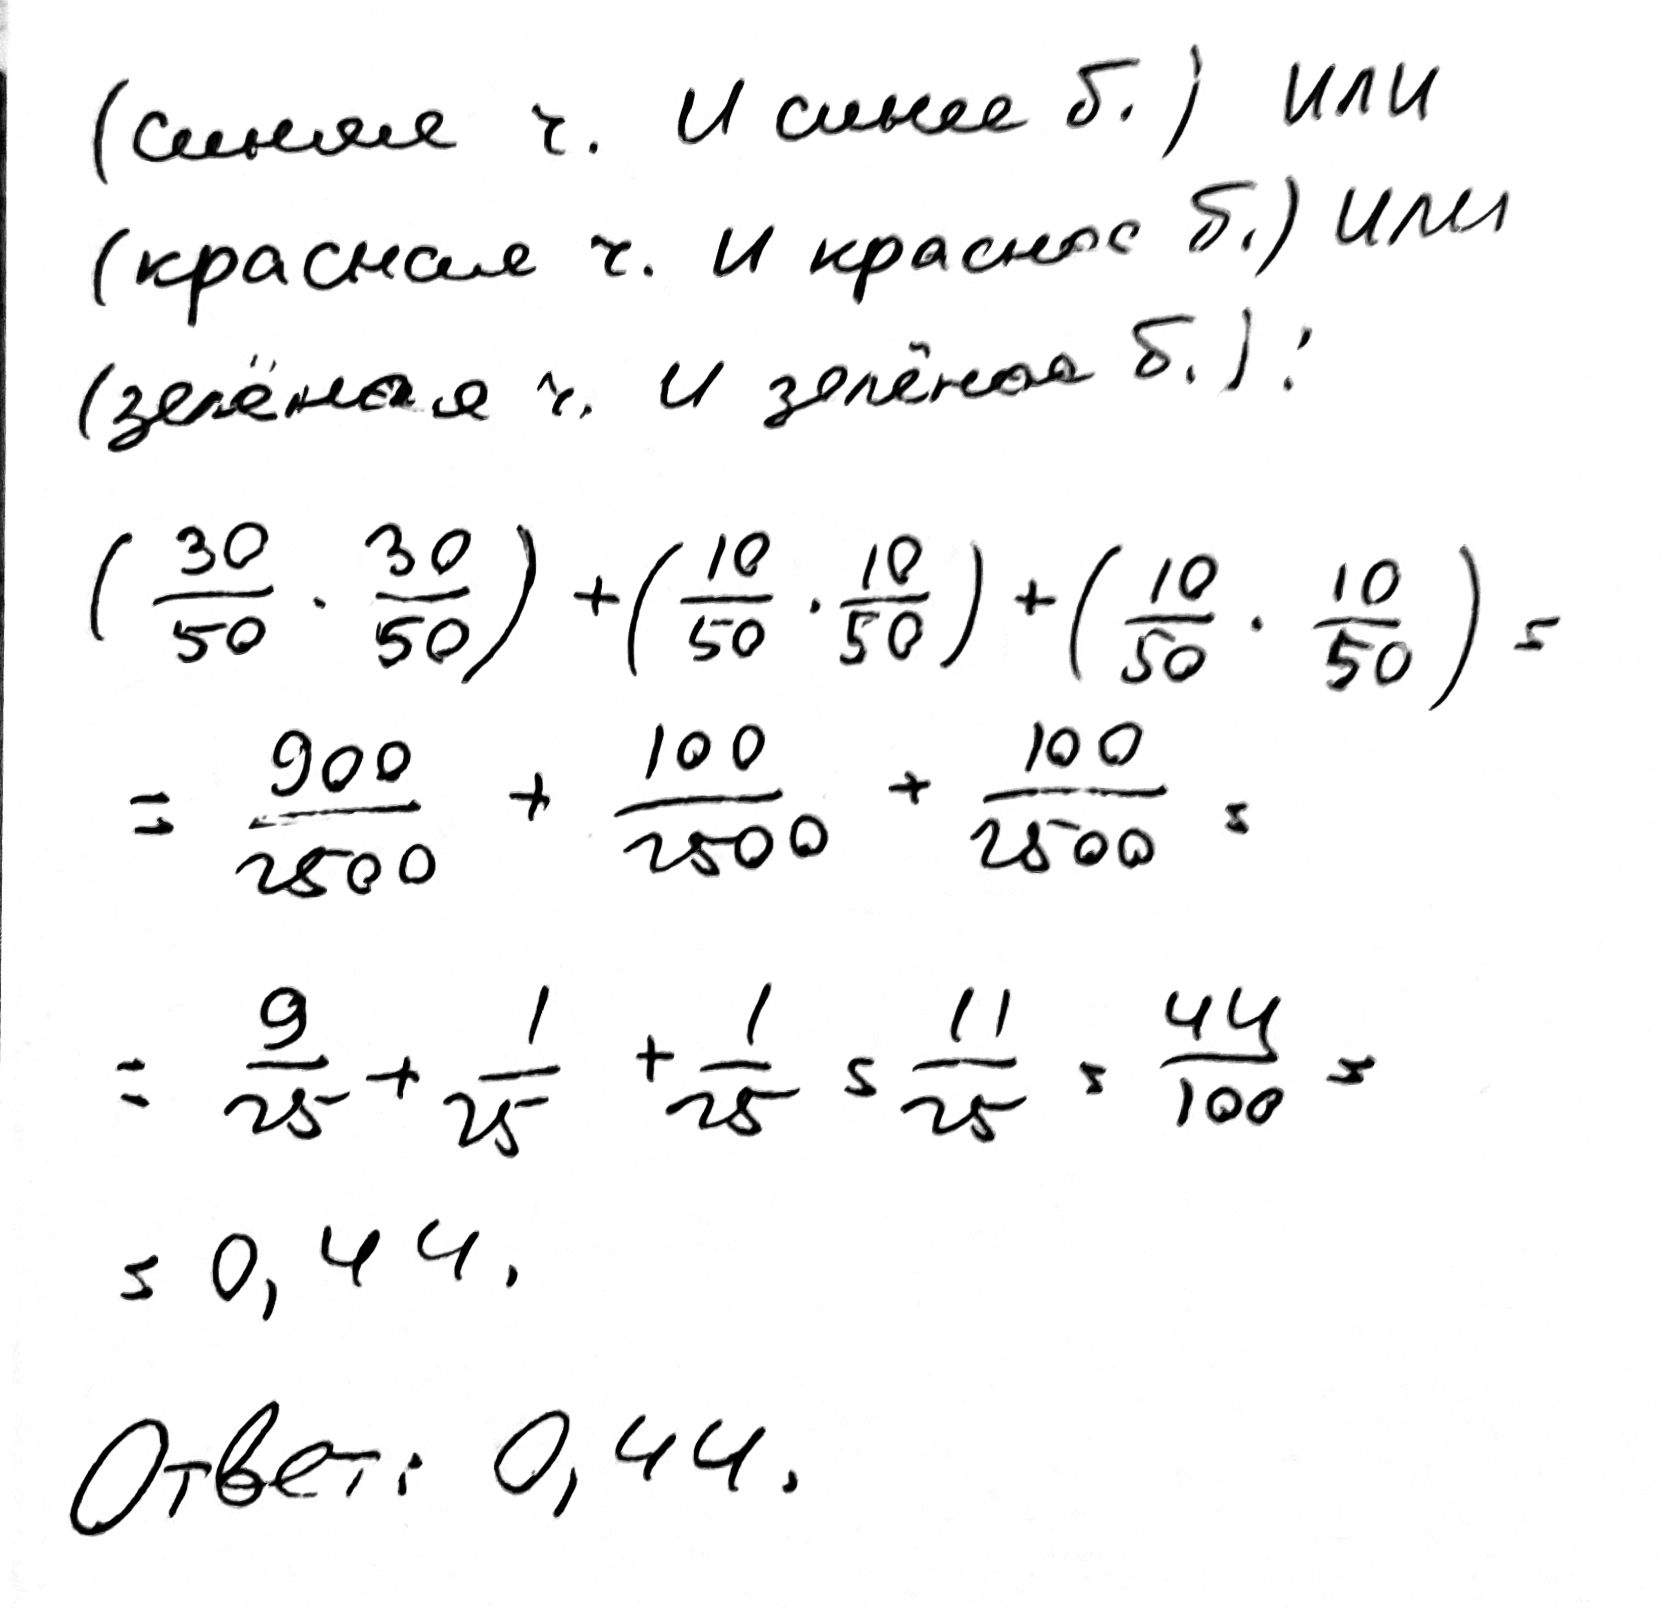 (синяя ч. И синее б.) ИЛИ
(красная ч. И красное б.) ИЛИ
(зелёная ч. И зелёное б.):
(30/50 · 30/50) + (10/50 · 10/50) + (10/50 · 10/50) =
= 900/2500 + 100/2500 + 100/2500 =
= 9/25 + 1/25 + 1/25 = 11/25 = 44/100 =
= 0,44.
Ответ: 0,44.